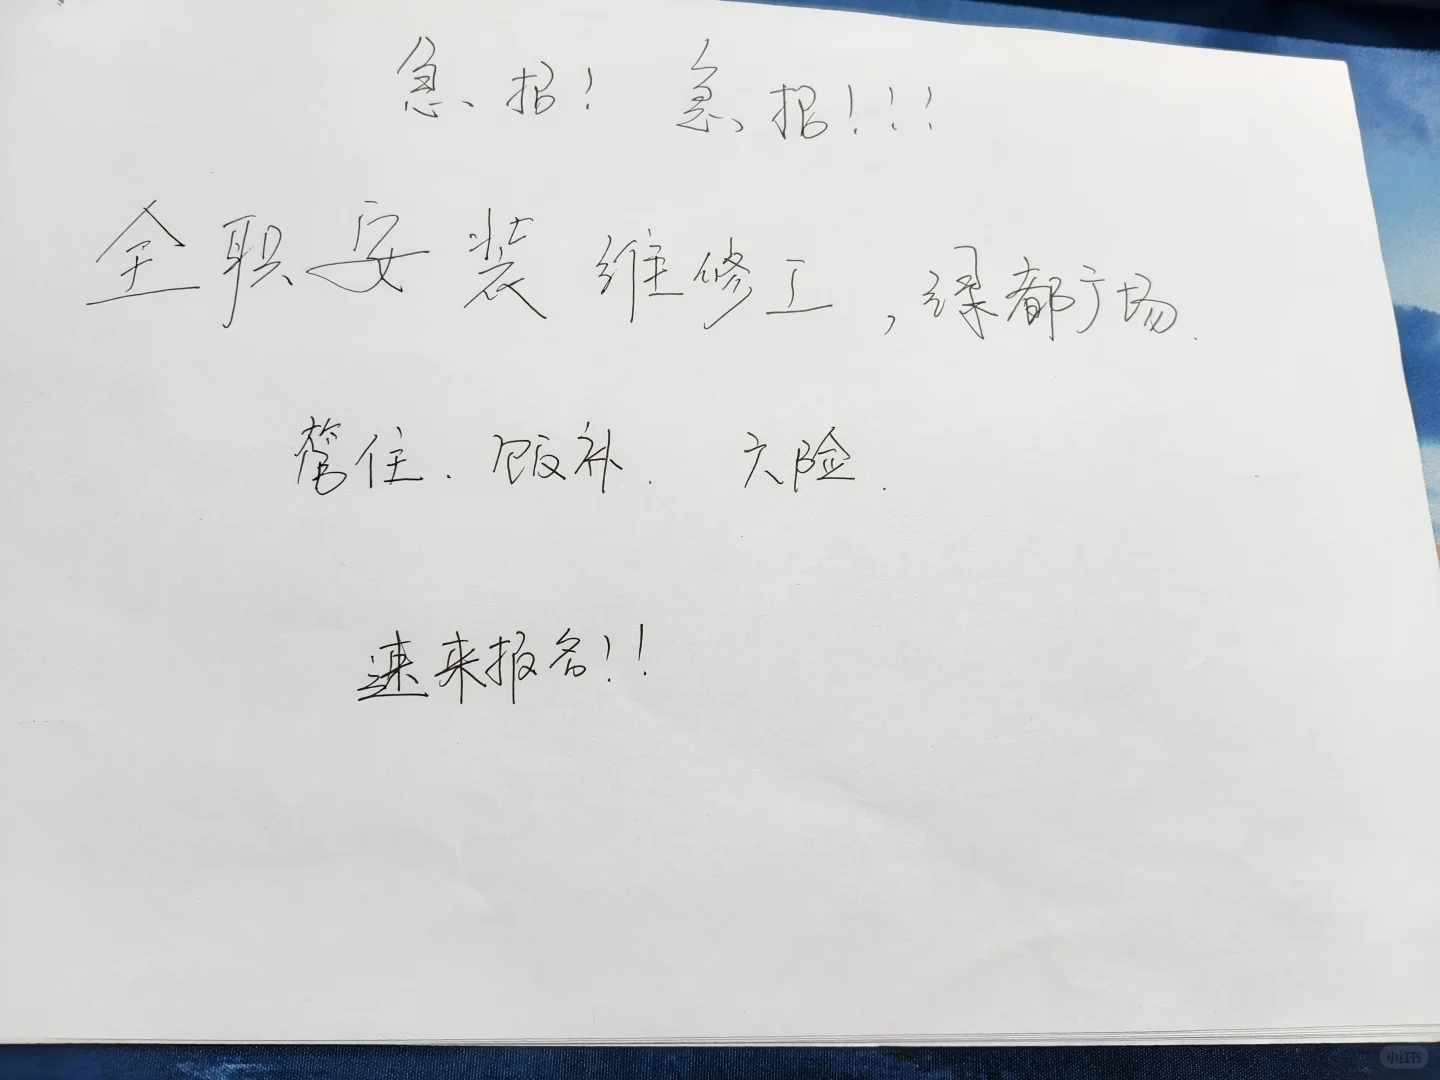 急招！ 急招！！！
全职安装维修工，绿都广场.
管住. 饭补. 六险.
速来报名！！
小红书